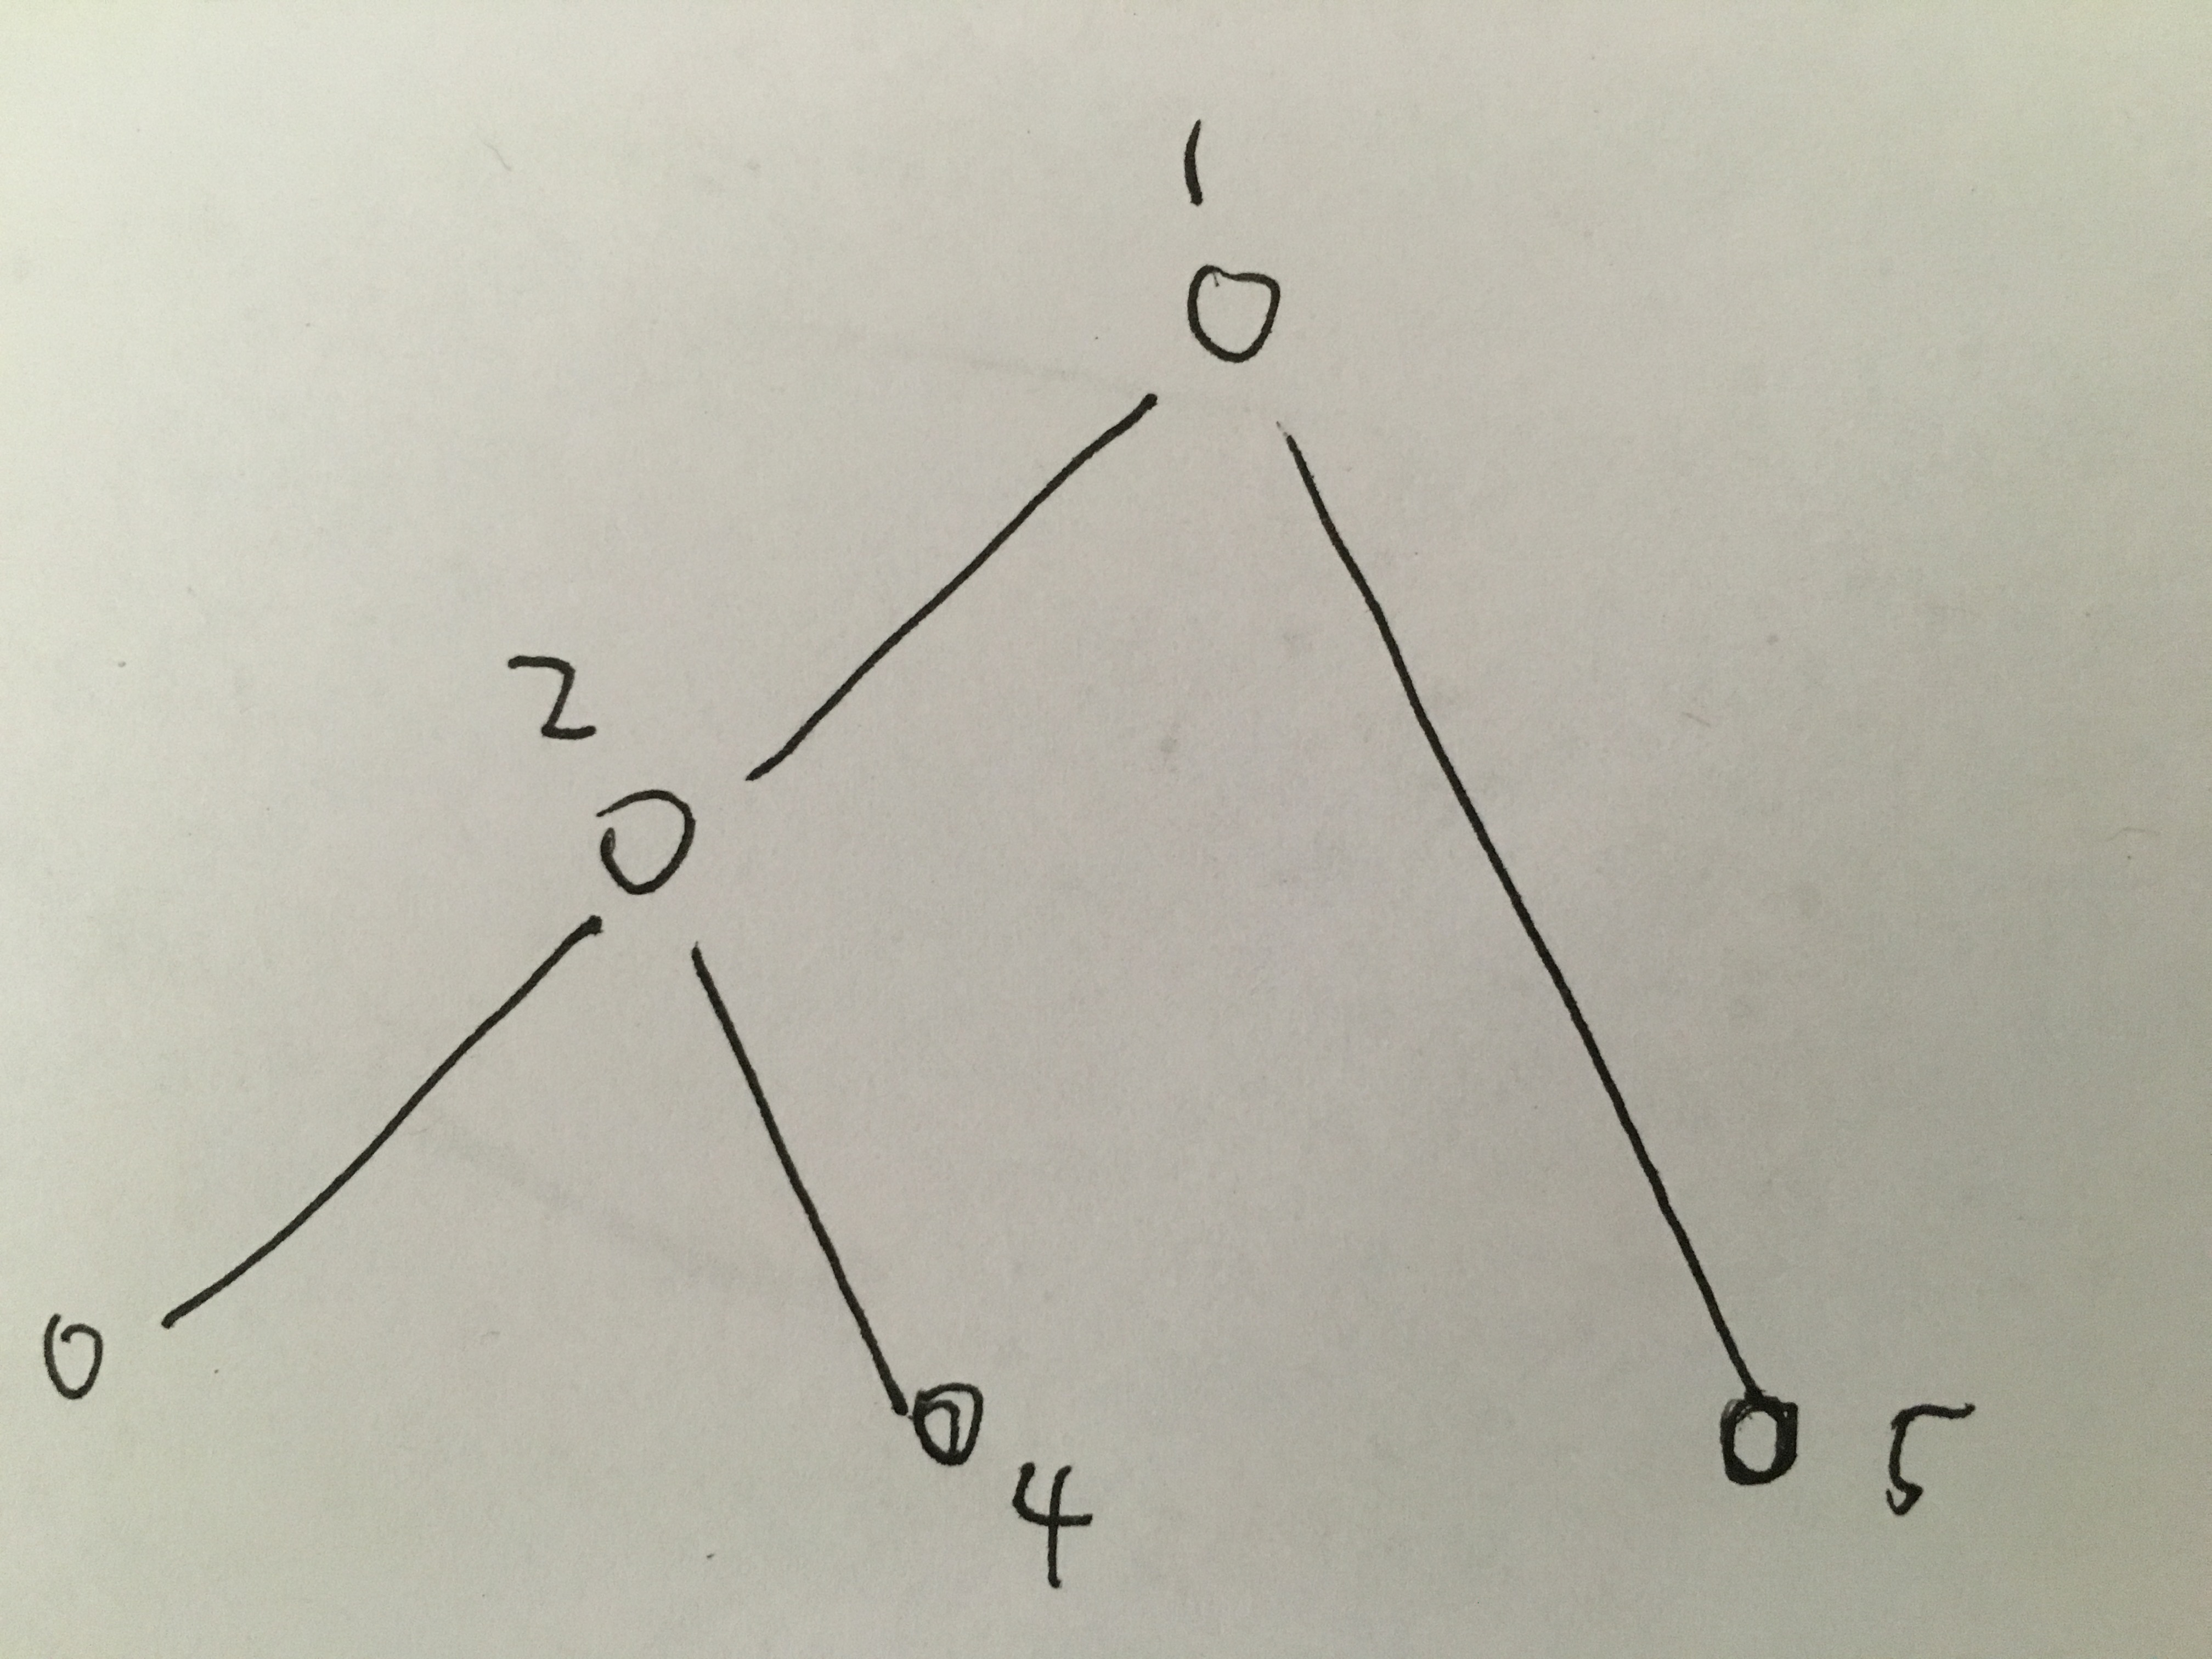 1
2
4
5